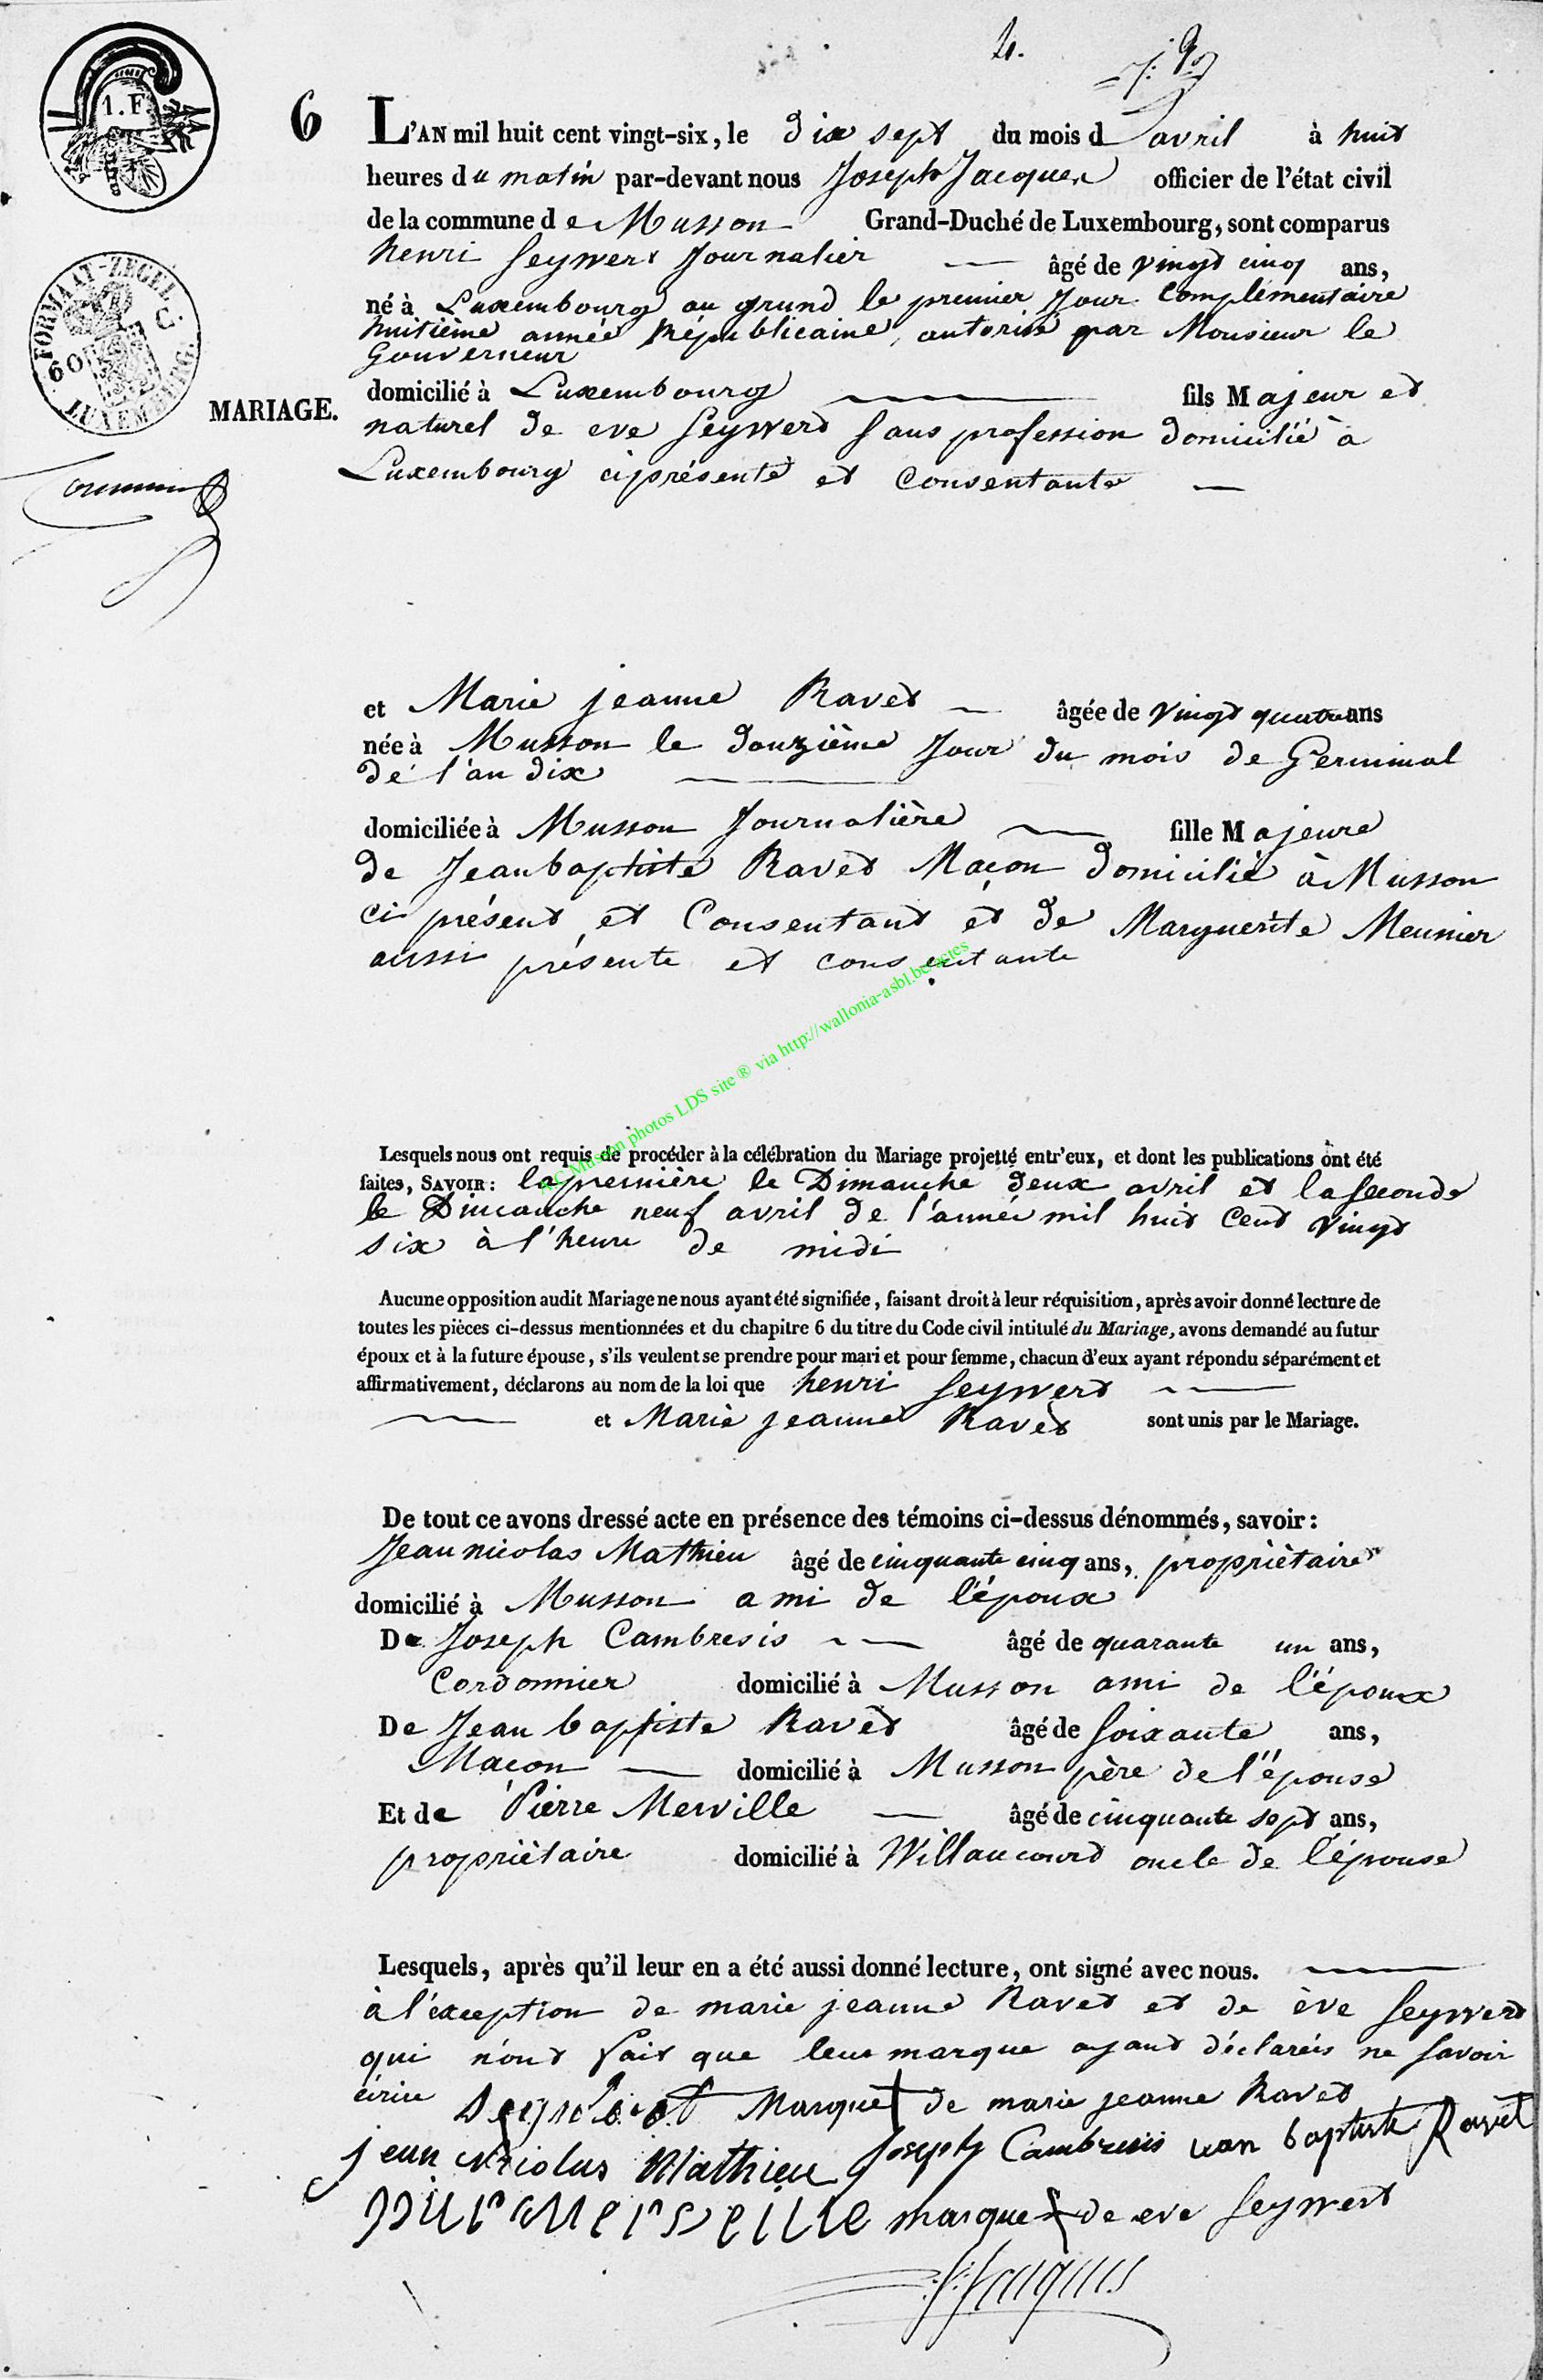 4.
1. F
6
L'AN mil huit cent vingt-six, le dix sept du mois d avril à huit
heures du matin par-devant nous Joseph Jacques officier de l'état civil
de la commune de Musson Grand-Duché de Luxembourg, sont comparus
henri Seywert Journalier âgé de vingt cinq ans,
né à Luxembourg au grund le premier Jour complémentaire
huitième année Républicaine, autorisé par Monsieur le
Gouverneur
FORMAAT-ZEGEL
60 C
LUXEMBURG.
MARIAGE.
domicilié à Luxembourg fils Majeur et
naturel de eve Seywerd sans profession domicilié à
Luxembourg ci présente et Consentante
et Marie jeanne Ravet âgée de vingt quatre ans
née à Musson le douzième Jour du mois de Germinal
de l'an dix
domiciliée à Musson Journalière fille Majeure
de Jean baptiste Ravet Maçon domicilié à Musson
ci présent et Consentant et de Marguerite Meunier
aussi présente et consentante
RC Musson photos LDS site ® via http://wallonia-asbl.be/actes
Lesquels nous ont requis de procéder à la célébration du Mariage projetté entr'eux, et dont les publications ont été
faites, SAVOIR : la première le Dimanche deux avril et la seconde
le Dimanche neuf avril de l'année mil huit cent vingt
six à l'heure de midi
Aucune opposition audit Mariage ne nous ayant été signifiée, faisant droit à leur réquisition, après avoir donné lecture de
toutes les pièces ci-dessus mentionnées et du chapitre 6 du titre du Code civil intitulé du Mariage, avons demandé au futur
époux et à la future épouse, s'ils veulent se prendre pour mari et pour femme, chacun d'eux ayant répondu séparément et
affirmativement, déclarons au nom de la loi que henri Seywerd
et Marie jeanne Ravet sont unis par le Mariage.
De tout ce avons dressé acte en présence des témoins ci-dessus dénommés, savoir :
Jean nicolas Mathieu âgé de cinquante cinq ans, propriètaire
domicilié à Musson ami de l'époux
De Joseph Cambresis âgé de quarante un ans,
Cordonnier domicilié à Musson ami de l'époux
De Jean baptiste Ravet âgé de soixante ans,
Maçon domicilié à Musson père de l'épouse
Et de Pierre Merville âgé de cinquante sept ans,
propriètaire domicilié à Willancourt oncle de l'épouse
Lesquels, après qu'il leur en a été aussi donné lecture, ont signé avec nous.
à l'exception de marie jeanne Ravet et de ève Seywerd
qui n'ont fait que leur marque ayant déclarées ne savoir
écrire Marque de marie jeanne Ravet
jean Nicolas Mathieu Joseph Cambresis Jean baptiste Ravet
marque de eve Seywert
J: Jacques